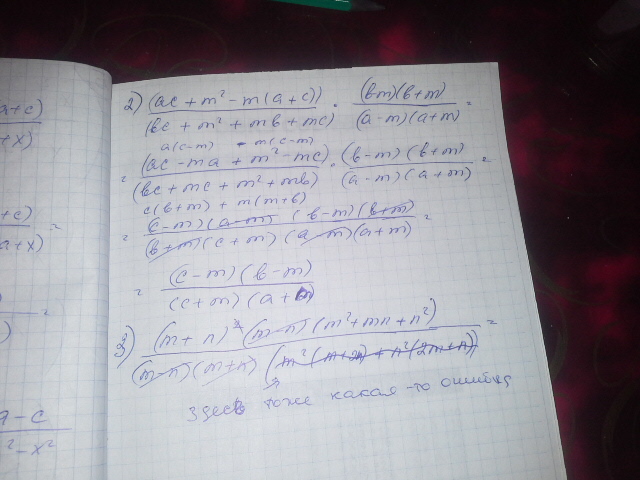 a+c)
+x)
+c)
a+x) =
) =
a-c
²-x²
2) (ac + m² - m(a+c)) / (bc + m² + mb + mc) · (bm)(b+m) / (a-m)(a+m) =
a(c-m) - m(c-m)
= (ac - ma + m² - mc) / (bc + mc + m² + mb) · (b-m)(b+m) / (a-m)(a+m) =
c(b+m) + m(m+b)
= (c-m)(a-m)(b-m)(b+m) / (b+m)(c+m)(a-m)(a+m) =
= (c-m)(b-m) / (c+m)(a+m)
3) (m+n)² (m-n)(m²+mn+n²) / (m-n)(m+n)(m²(m+2n)+n²(2m+n)) =
здесь тоже какая-то ошибка